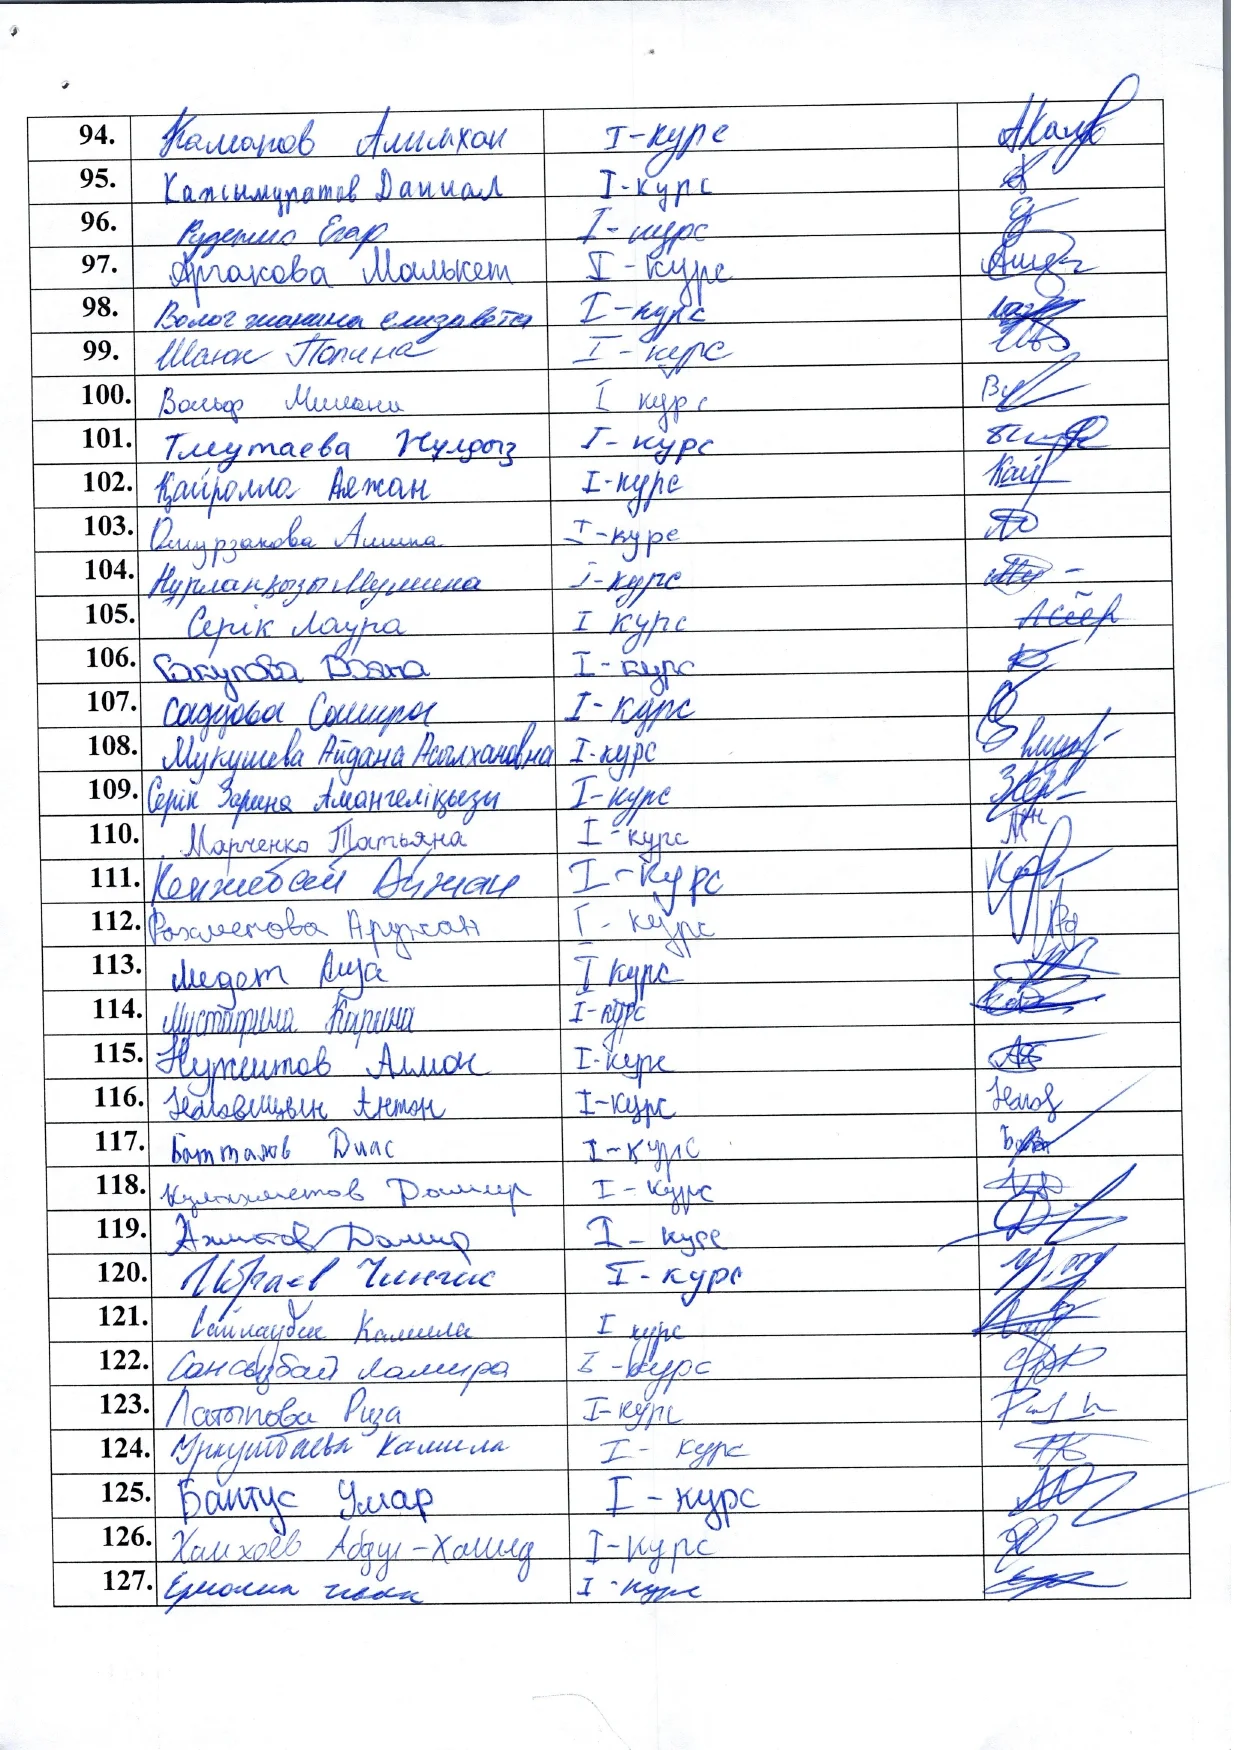 94. Каманов Алимхан I-курс
95. Капымуратов Даниал I-курс
96. Руденко Егор I-курс
97. Аргакова Малькет I-курс
98. Вологжанина елизавета I-курс
99. Шаюк Полина I-курс
100. Вольф Милана I курс
101. Тлеутаева Жулдыз I-курс
102. Қайролла Аяжан I-курс
103. Омурзакова Амина I-курс
104. Нурланқызы I-курс
105. Серік Лаура I курс
106. Дояна I-курс
107. Садуова Самира I-курс
108. Мукушева Айдана Асылхановна I-курс
109. Серік Зарина Амангелікызы I-курс
110. Марченко Татьяна I-курс
111. Кенжебай Аужан I-курс
112. Рахметова Аружан I-курс
113. Медет Аида I курс
114. Мустафина Карина I-курс
115. Алмас I-курс
116. Антон I-курс
117. Батталов Диас I-курс
118. Кулахметов Дамир I-курс
119. Ахметов Дамир I-курс
120. Чингис I-курс
121. Сайлаубек Камила I курс
122. Сансызбай Ламира I-курс
123. Латыпова Риза I-курс
124. Уркунбаева Камила I-курс
125. Бантус Умар I-курс
126. Хамхоев Абдул-Хамид I-курс
127. Ермолин I-курс